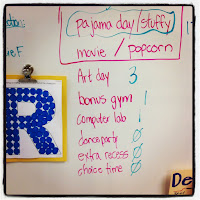 pajama day/stuffy
movie / popcorn
Art day 3
bonus gym 1
computer lab 1
dance party 0
extra recess 0
choice time 0
R
De